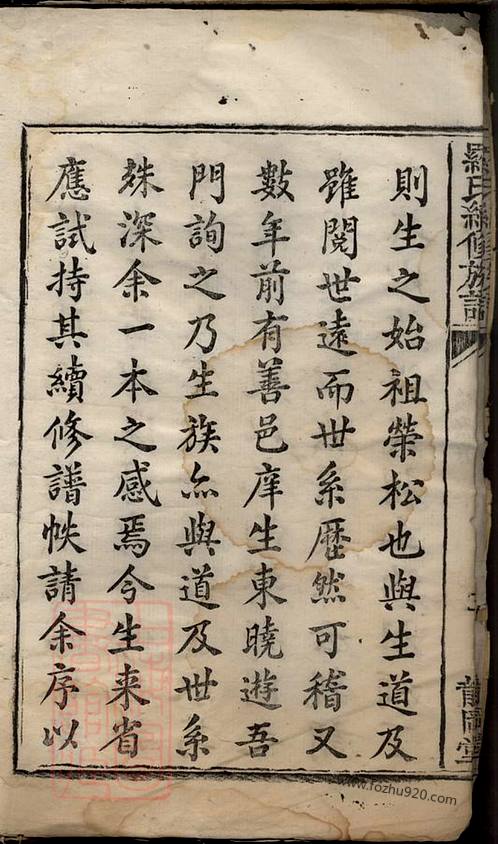 羅氏續修族譜
則生之始祖榮松也與生道及
雖閱世遠而世系歷然可稽又
數年前有善邑庠生東曉遊吾
門詢之乃生族亦與道及世系
殊深余一本之感焉今生来省
應試持其續修譜帙請余序以
www.fozhu920.com